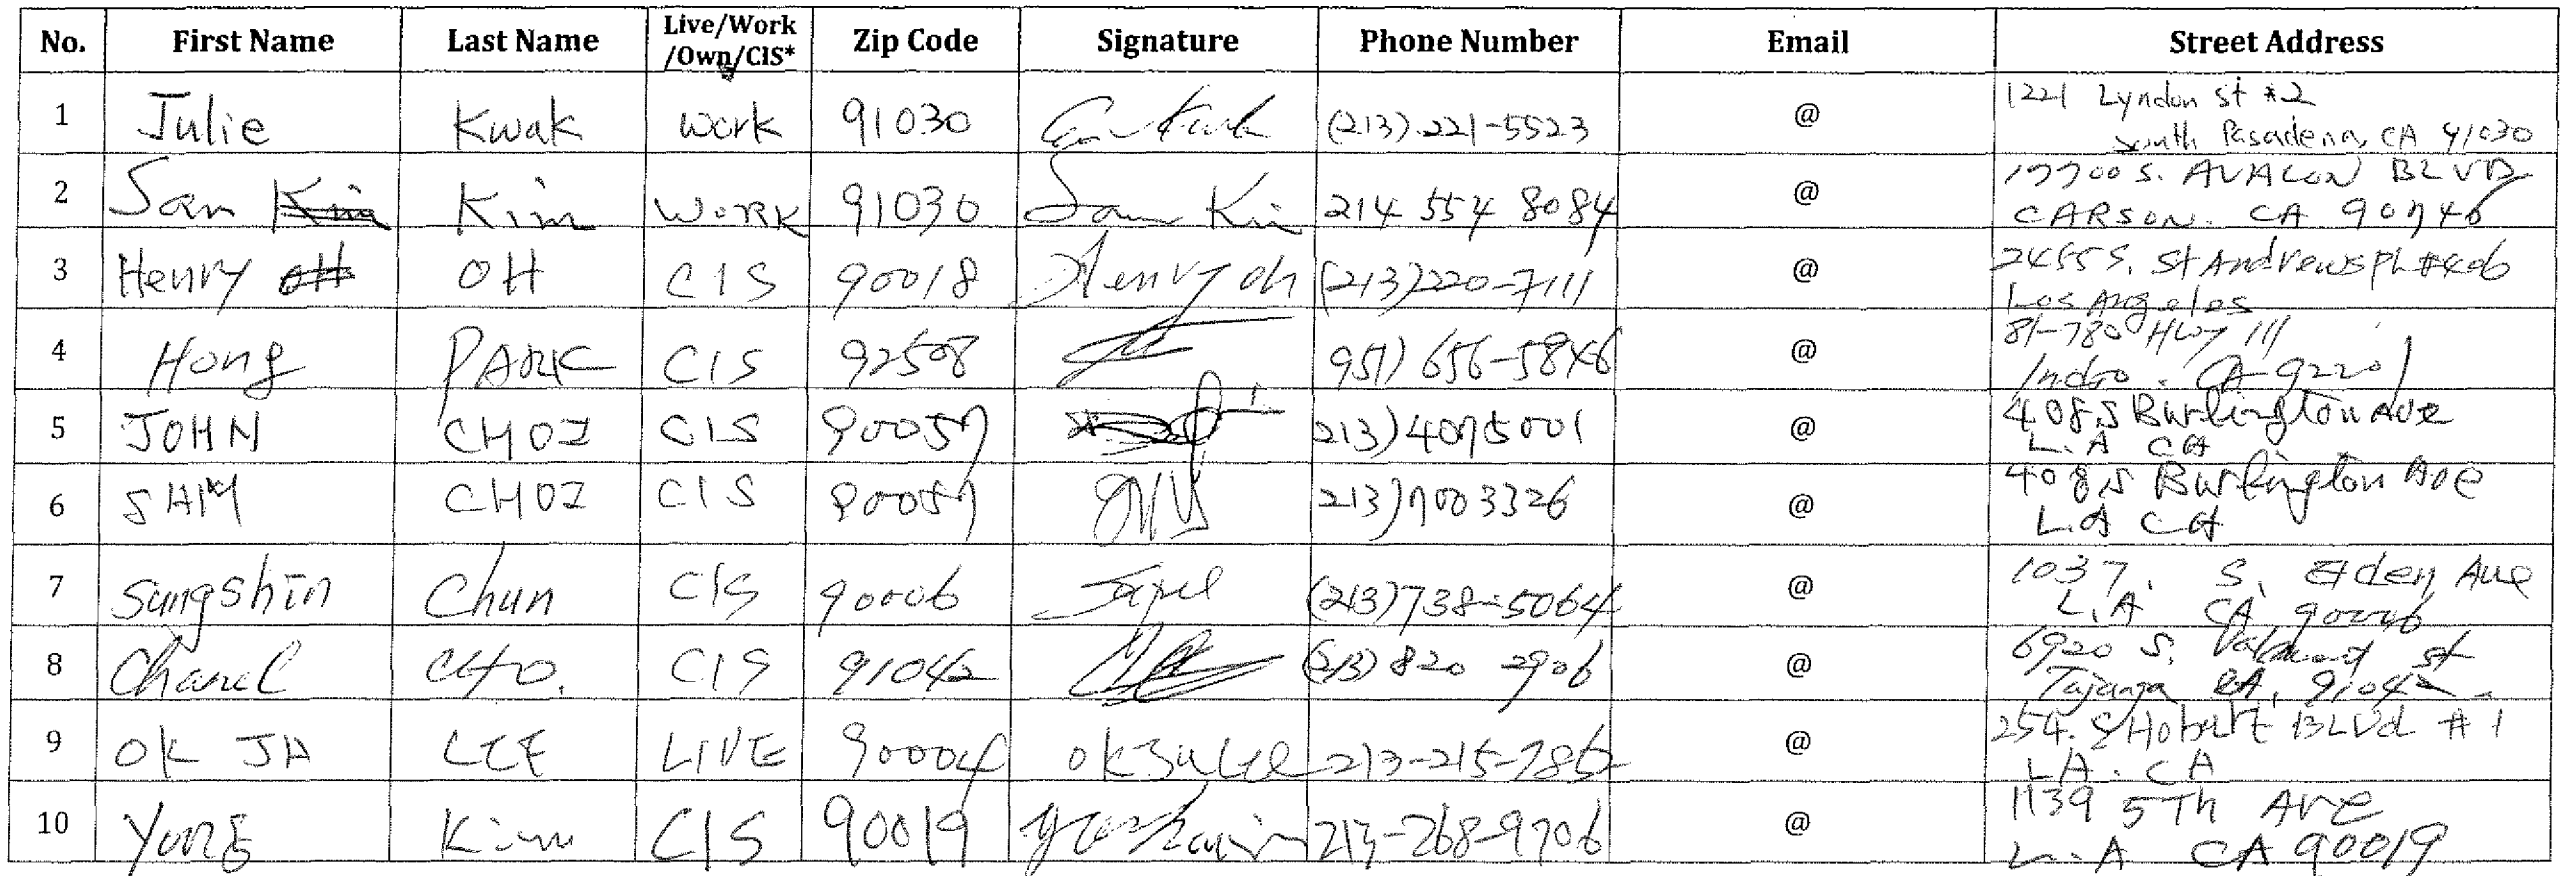 No. First Name Last Name Live/Work /Own/CIS* Zip Code Signature Phone Number Email Street Address
1 Julie Kwak Work 91030 (213) 221-5523 @ 1221 Lyndon St #2
South Pasadena, CA 91030
2 Sam Kim WORK 91030 Sam Kim 214 554 8084 @ 19700 S. AVALON BLVD
CARSON. CA 90746
3 Henry OH CIS 90018 Henry oh (213)220-7111 @ 2455 S. St Andrews Pl #406
Los Angeles
4 Hong PARK CIS 92508 951) 656-5846 @ 81-780 HWY 111
Indio. CA 92201
5 JOHN CHOI CIS 90057 213) 4075001 @ 408 S Burlington Ave
L.A CA
6 SAM CHOI CIS 90057 213)7003326 @ 408 S Burlington Ave
L.A CA
7 Sungshin Chun CIS 90006 (213)738-5064 @ 1037. S. Elden Ave
L.A CA 90006
8 Chanel CHO. CIS 91042 (213) 820 2906 @ 6920 S. St
CA, 91042
9 OK JA LEE LIVE 90004 ok Ja Lee 213-215-7862 @ 254. S Hobart BLVd #1
LA. CA
10 Yong Kim CIS 90019 213-268-9706 @ 1139 5Th Ave
L.A CA 90019